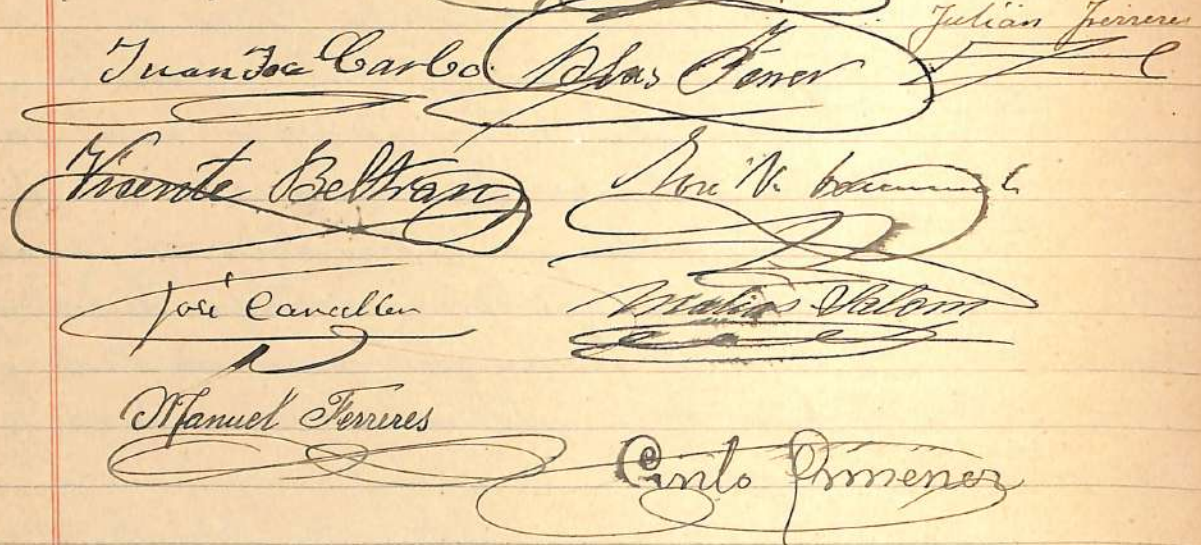 Julián Ferreres
Juan Jose Carbo Blas Ferrer
Vicente Beltran José
José Matias Salom
Manuel Ferreres
Cirilo Gimenez